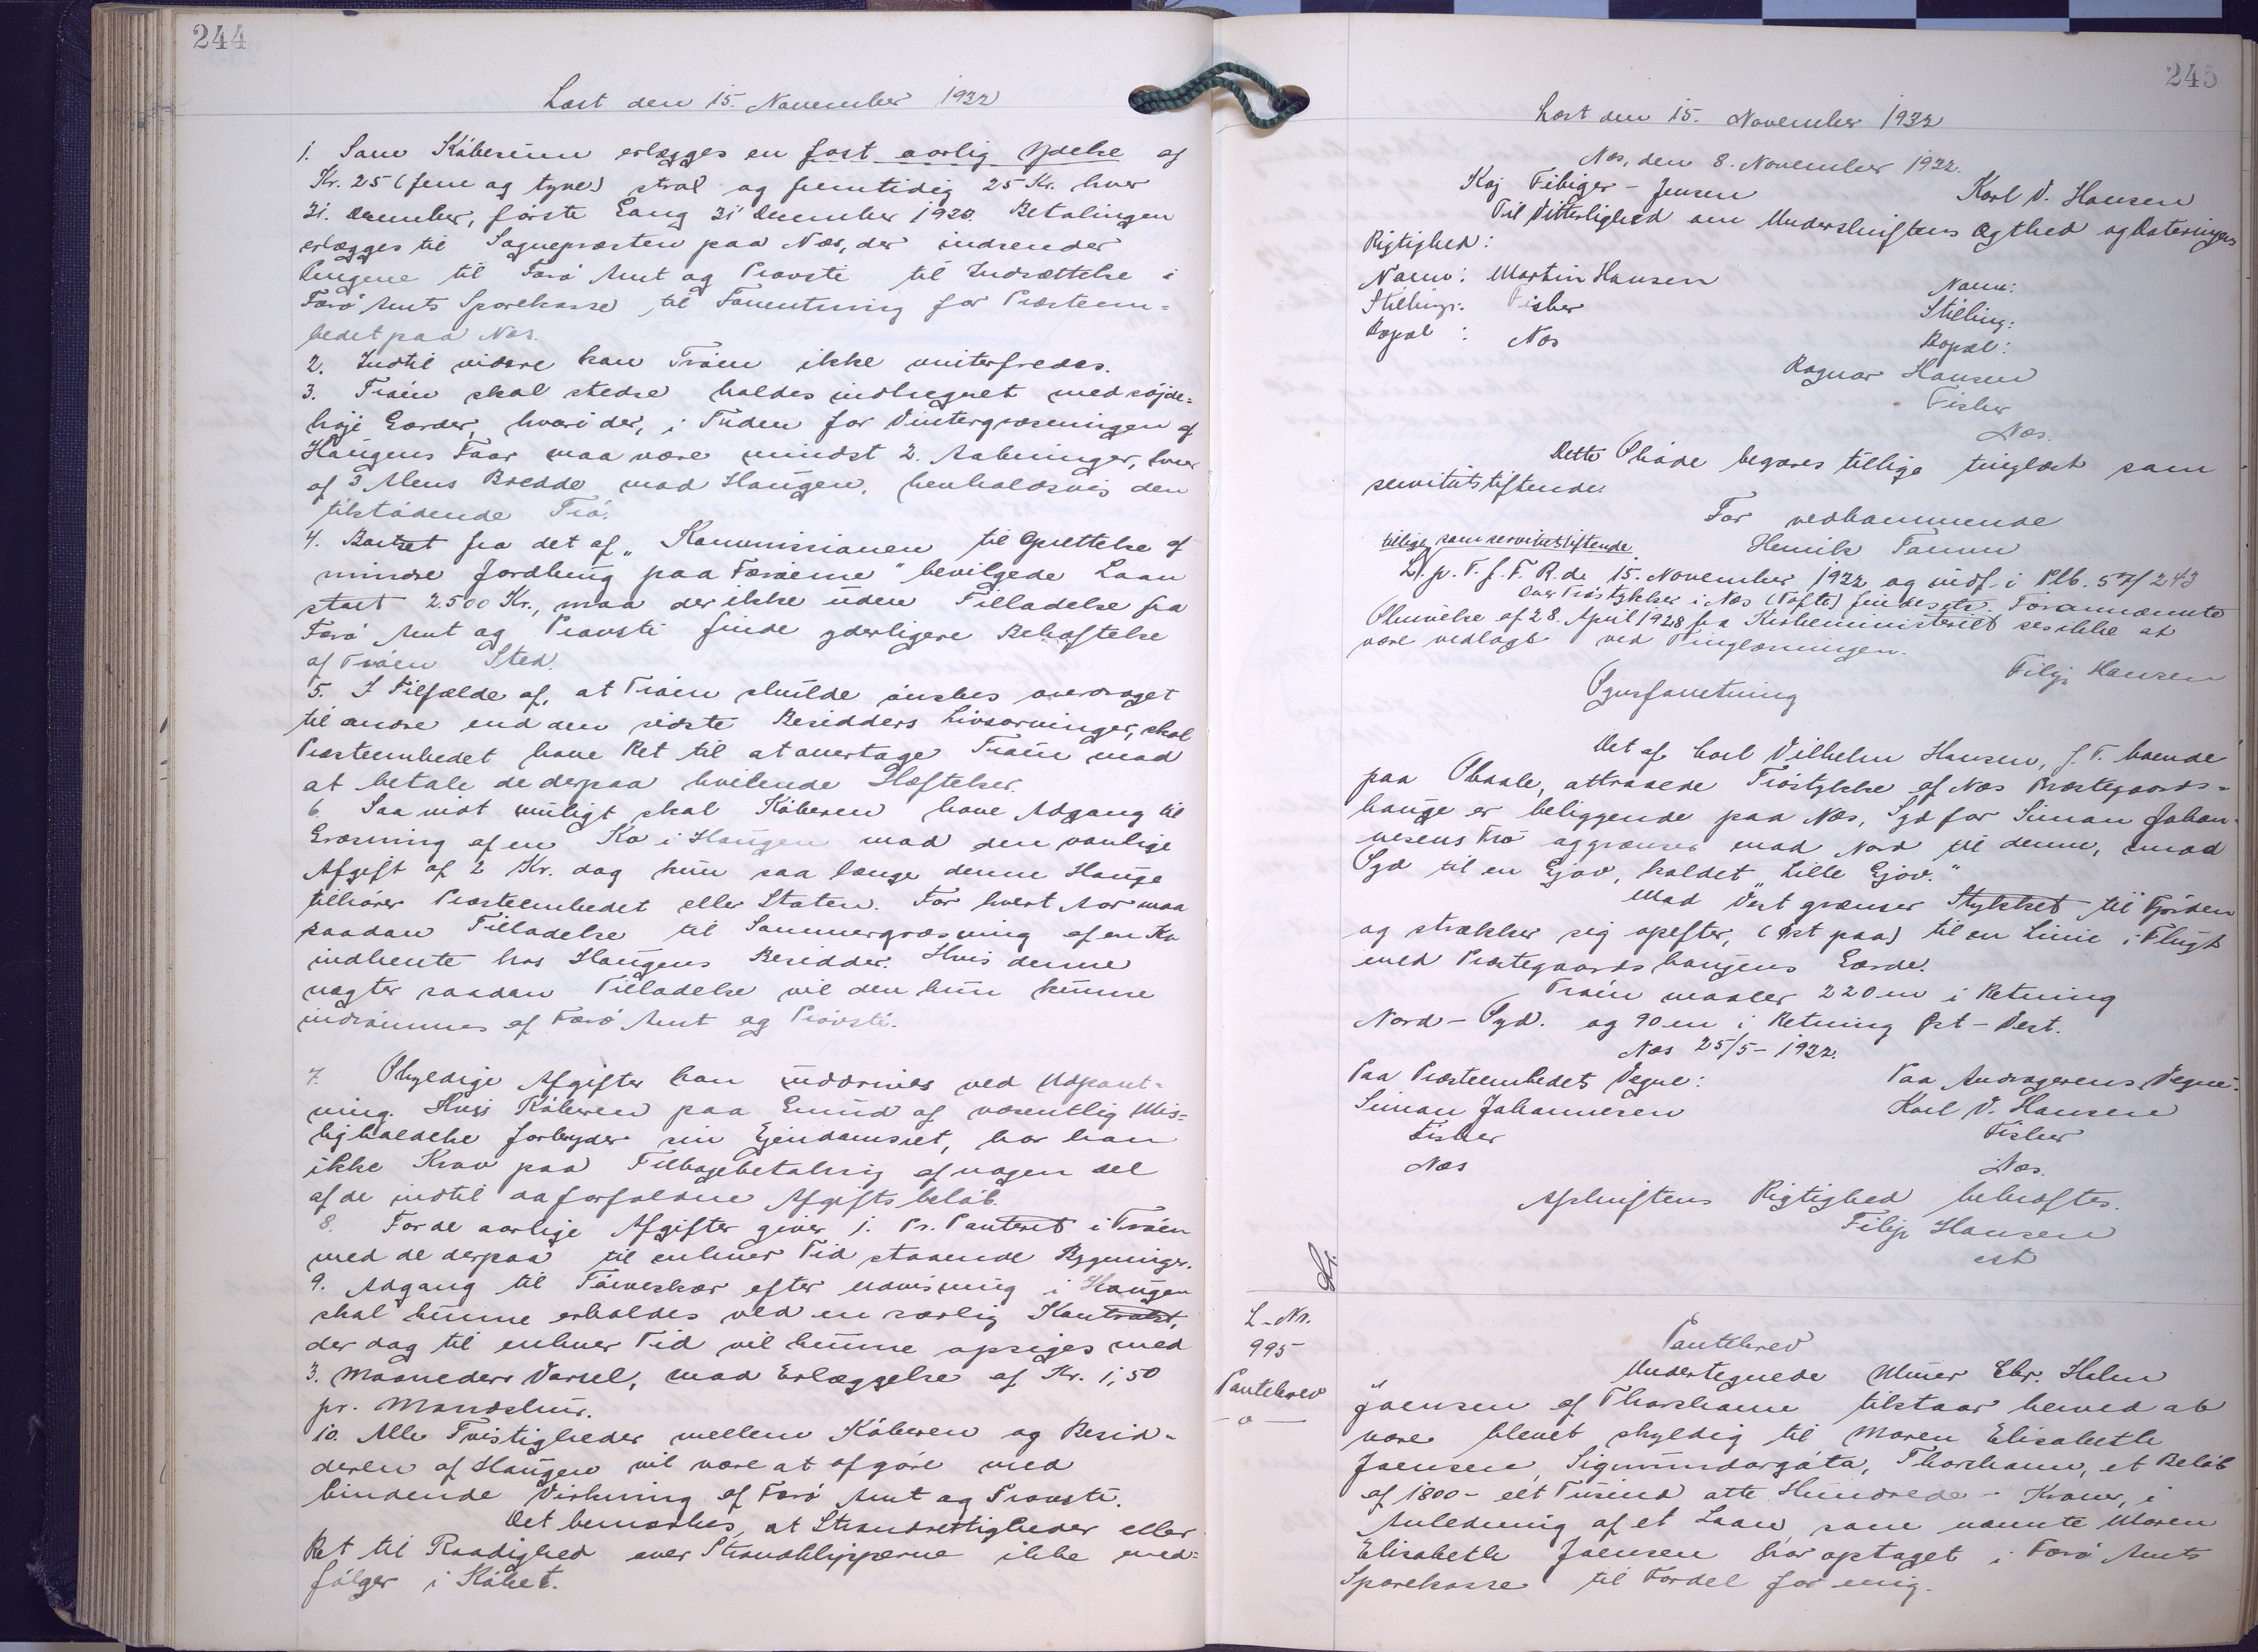 244
Læst den 15. November 1932
1. Som Købesum erlægges en fast aarlig Ydelse af
Kr. 25 (fem og tyve) stral og fremtidig 25 Kr. hver
31. December, første Gang 31 December 1920. Betalingen
erlægges til Sognepræsten paa Næs, der indsender
Pengene til Færø Amt og Provsti til Indsættelse i
Færø Amts Sparekasse til Forrentning for Præsteem=
bedet paa Næs.
2. Indtil videre kan Trøen ikke vinterfredes.
3. Trøen skal stedse holdes indhegnet med søjde=
høje Gærder, hvori der, i Tiden for Vintergræsningen af
Haugens Faar maa være mindst 2. Aabninger, hver
af 3 Alens Bredde mod Haugen, henholdsvis den
tilstødende Trø.
4. Bortset fra det af „Kommissionen til Oprettelse af
mindre Jordbrug paa Færøerne" bevilgede Laan
stort 2500 Kr., maa der ikke uden Tilladelse fra
Færø Amt og Provsti finde yderligere Behæftelse
af Trøen Sted.
5. I Tilfælde af, at Trøen skulde ønskes overdraget
til andre end den sidste Besidders Livsarvinger, skal
Præsteembedet have Ret til at overtage Trøen mod
at betale de derpaa hvilende Hæftelser.
6. Saa vidt muligt skal Køberen have Adgang til
Græsning af en Ko i Haugen mod den vanlige
Afgift af 2 Kr. dog kun saa længe denne Hauge
tilhører Præsteembedet eller Staten. For hvert Aar maa
saadan Tilladelse til Sommergræsning af en Ko
indhente hos Haugens Besidder. Hvis denne
nægter saadan Tilladelse vil den kun kunne
indrømmes af Færø Amt og Provsti.
7. Skyldige Afgifter kan inddrives ved Udpant=
ning. Hvis Køberen paa Grund af væsentlig Mis=
ligholdelse forbryder sin Ejendomsret, har han
ikke Krav paa Tilbagebetaling af nogen Del
af de indtil da forfaldne Afgiftsbeløb.
8. For de aarlige Afgifter gives 1. Pr. Panteret i Trøen
med de derpaa til enhver Tid staaende Bygninger.
9. Adgang til Tørveskær efter udvisning i Haugen
skal kunne erholdes ved en særlig Kontrakt,
der dog til enhver Tid vil kunne opsiges med
3. Maaneders Varsel, mod Erlæggelse af Kr. 1,50
pr. Mandskur.
10. Alle Tvistigheder mellem Køberen og Besid=
deren af Haugen vil være at afgøre med
bindende Virkning af Færø Amt og Provsti.
Det bemærkes, at Strandrettigheder eller
Ret til Raadighed over Strandklipperne ikke med=
følger i Købet.
245
Læst den 15. November 1932
Næs, den 8. November 1932.
Kaj Fibiger-Jensen Karl V. Hansen
Til Vitterlighed om Underskriftens Ægthed og Dateringens
Rigtighed:
Navn: Martin Hansen Navn:
Stilling: Fisker Stilling:
Bopæl: Næs Bopæl:
Ragnar Hansen
Fisker
Næs.
Dette Skøde begæres tillige tinglæst som
servitutstiftende.
For vedkommende
tillige som servitutstiftende. Henrik
L. p. T. f. F. R. d. 15. November 1932 og indf. i Plb. 57/243
Over Trøstykker i Næs (Toftø) findes etc. Forannævnte
Skrivelse af 28. April 1928 fra Kirkeministeriet ses ikke at
være vedlagt ved Tinglæsningen.
Filip Hansen
Synsforretning
Det af Carl Vilhelm Hansen, f. T. boende
paa Skaale, attraaede Trøstykke af Næs Præstegaards=
hauge er beliggende paa Næs, Syd for Simon Johan=
nesens Trø og grænser mod Nord til denne, mod
Syd til en Gjov, kaldet „Lille Gjov."
Mod Vest grænser Stykket til Fjorden
og strækker sig opefter, (Øst paa) til en Linie i Flugt
med Præstegaardshaugens Gærde.
Trøen maaler 220 m i Retning
Nord-Syd. og 90 m i Retning Øst-Vest.
Næs 25/5-1932.
Paa Præsteembedets Vegne: Paa Andragerens Vegne:
Simon Johannesen Karl V. Hansen
Fisker Fisker
Næs Næs.
Afskriftens Rigtighed bekræftes.
Filip Hansen
cst
L-Nr.
995
Pantebrev
-o-
Pantebrev
Undertegnede Elmer Chr. Holm
Joensen af Thorshavn tilstaar herved at
være blevet skyldig til Maren Elisabeth
Joensen, Sigmundargøta, Thorshavn, et Beløb
af 1800 - eet Tusind otte Hundrede - Kroner, i
Anledning af et Laan, som nævnte Maren
Elisabeth Joensen har optaget i Færø Amts
Sparekasse til Fordel for mig.